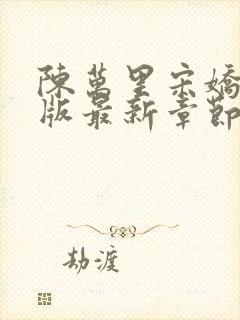 陳萬里宋嬌
版最新章節
劫渡